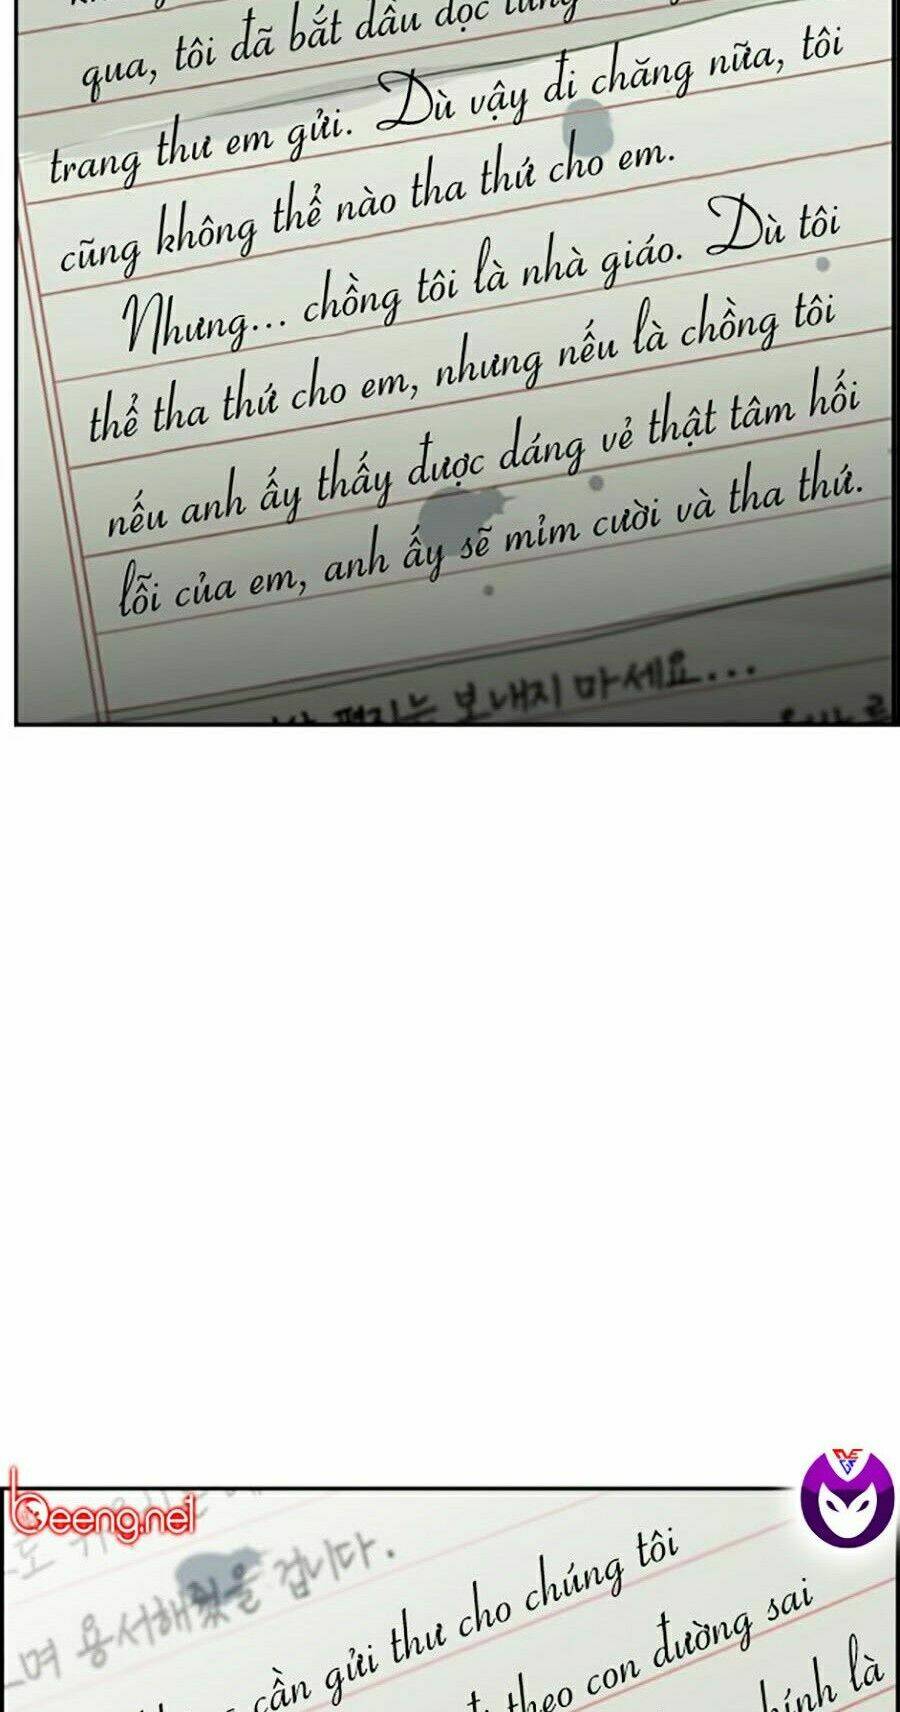 qua, tôi đã bắt đầu đọc từng
trang thư em gửi. Dù vậy đi chăng nữa, tôi
cũng không thể nào tha thứ cho em.
Nhưng... chồng tôi là nhà giáo. Dù tôi
thể tha thứ cho em, nhưng nếu là chồng tôi
nếu anh ấy thấy được dáng vẻ thật tâm hối
lỗi của em, anh ấy sẽ mỉm cười và tha thứ.
편지는 보내지 마세요...
beeng.net
며 용서해줬을 겁니다.
cần gửi thư cho chúng tôi
theo con đường sai
chính là